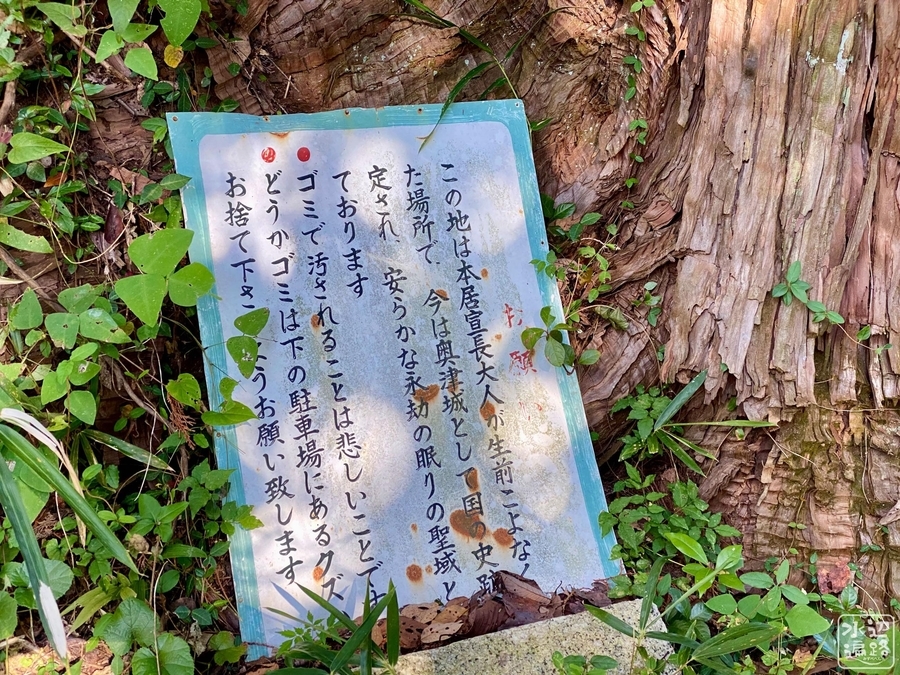 お願
この地は本居宣長大人が生前こよなく
た場所で、今は奥津城として国の史跡
定され、安らかな永劫の眠りの聖域と
ております
ゴミで汚されることは悲しいことで
どうかゴミは下の駐車場にあるクズ
お捨て下さ ようお願い致します